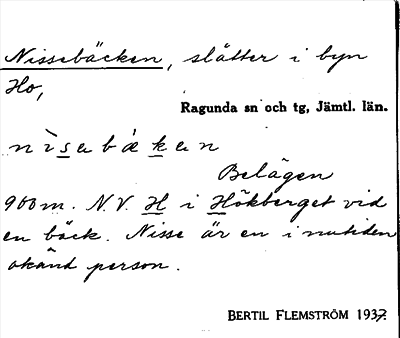 Nissebäcken, slåtter i byn
Ho,
Ragunda sn och tg, Jämtl. län.
n ì s a b ä́ k a n
Belägen
900 m. N.V. H i Hökberget vid
en bäck. Nisse är en i nutiden
okänd person.
BERTIL FLEMSTRÖM 1937.